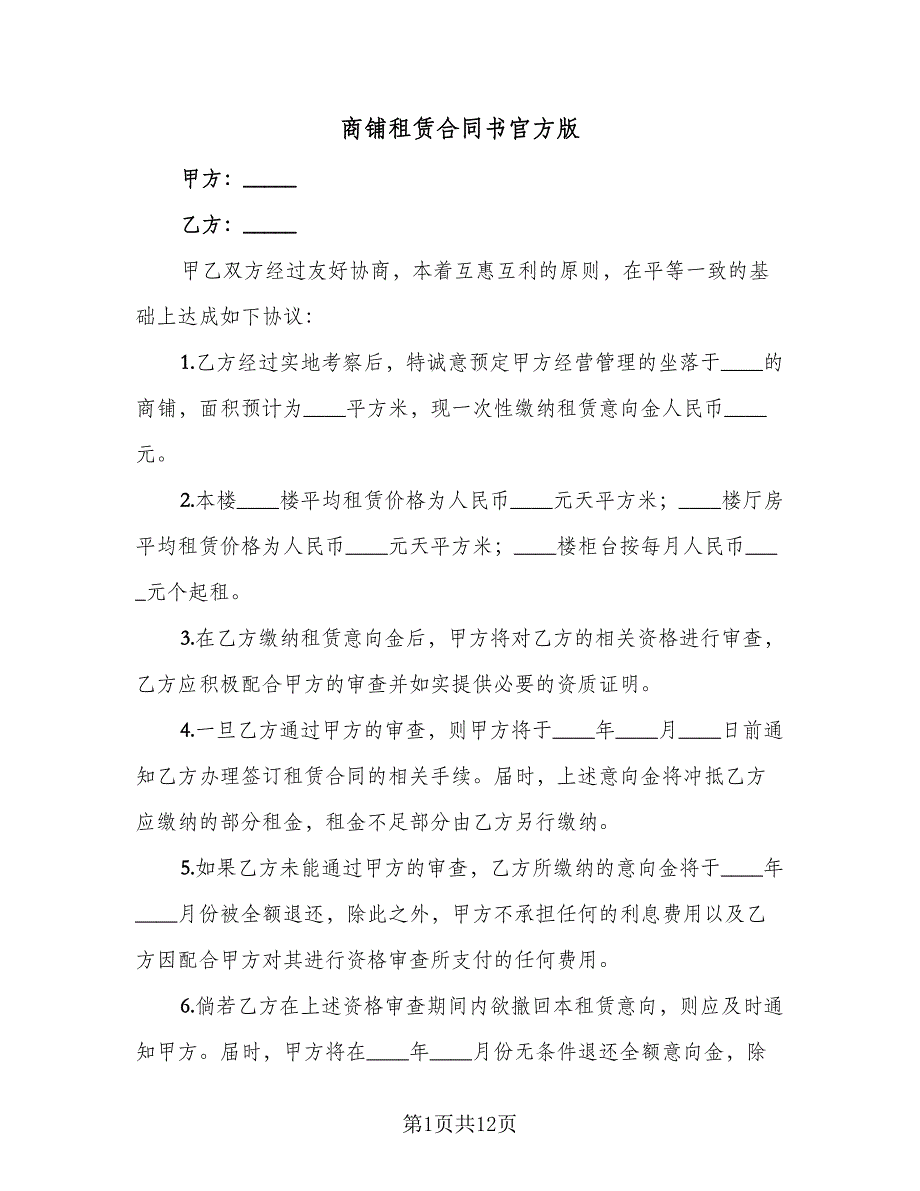 商铺租赁合同书官方版
甲方：_____
乙方：_____
甲乙双方经过友好协商，本着互惠互利的原则，在平等一致的基
础上达成如下协议：
1.乙方经过实地考察后，特诚意预定甲方经营管理的坐落于____的
商铺，面积预计为____平方米，现一次性缴纳租赁意向金人民币____
元。
2.本楼____楼平均租赁价格为人民币____元天平方米；____楼厅房
平均租赁价格为人民币____元天平方米；____楼柜台按每月人民币___
_元个起租。
3.在乙方缴纳租赁意向金后，甲方将对乙方的相关资格进行审查，
乙方应积极配合甲方的审查并如实提供必要的资质证明。
4.一旦乙方通过甲方的审查，则甲方将于____年____月____日前通
知乙方办理签订租赁合同的相关手续。届时，上述意向金将冲抵乙方
应缴纳的部分租金，租金不足部分由乙方另行缴纳。
5.如果乙方未能通过甲方的审查，乙方所缴纳的意向金将于____年
____月份被全额退还，除此之外，甲方不承担任何的利息费用以及乙
方因配合甲方对其进行资格审查所支付的任何费用。
6.倘若乙方在上述资格审查期间内欲撤回本租赁意向，则应及时通
知甲方。届时，甲方将在____年____月份无条件退还全额意向金，除
第1页共12页